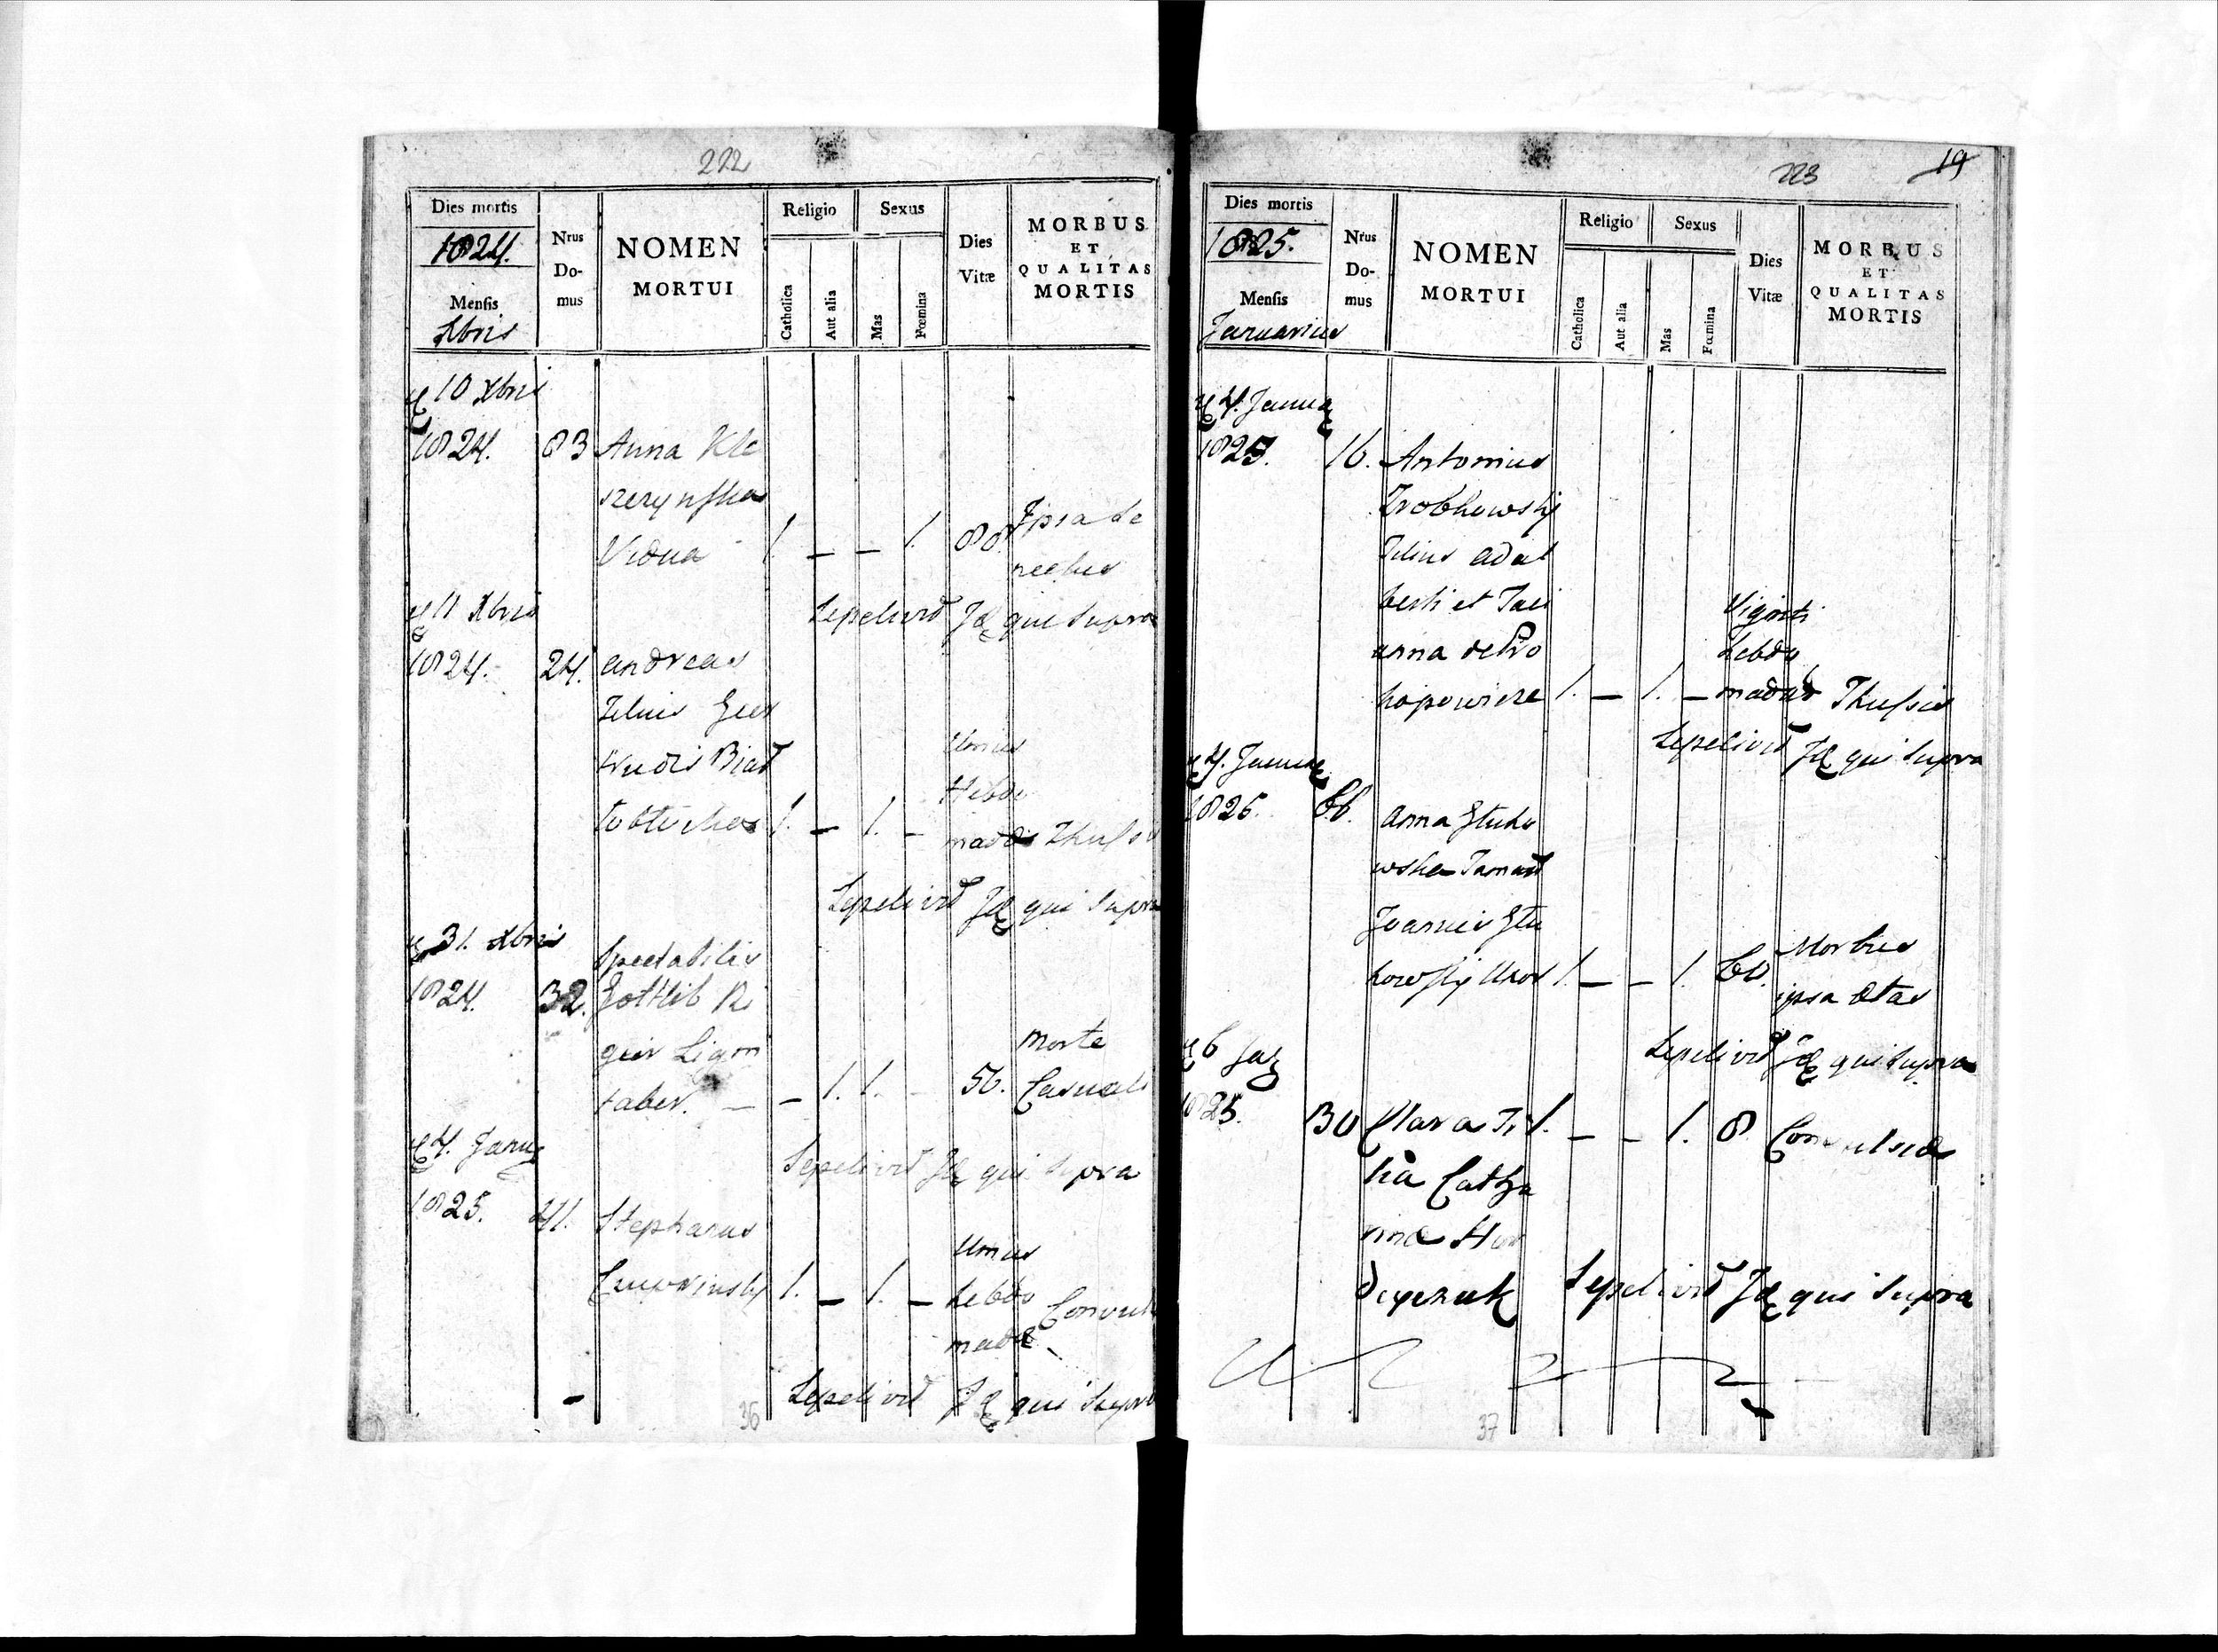 222
Dies mortis
1824.
Mensis
Xbris
Nrus
Do-
mus
NOMEN
MORTUI
Religio
Catholica
Aut alia
Sexus
Mas
Fœmina
Dies
Vitæ
MORBUS
ET
QUALITAS
MORTIS
10 Xbris
1824. 83 Anna Kle
Vidua 1. – – 1. 80. Ipsa se
nectus
Sepelivit Id qui supra
11 Xbris
1824. 24. Andreas
Filius Ger
trudis
Unius
Hebdo
1. – 1. – madis Thussis
Sepelivit Id qui supra
31. Xbris
Spectabilis
1824. 32. Gottlib Ri
ger Lign
faber. – – 1. 1. – 56. Morte
Casuali
Sepelivit Id qui supra
4. Janu
1825. 41. Stephanus
1. – 1. –
Unius
hebdo
madæ Convuls
Sepelivit Id qui supra
36
223
19
Dies mortis
1825.
Mensis
Januarius
Nrus
Do-
mus
NOMEN
MORTUI
Religio
Catholica
Aut alia
Sexus
Mas
Fœmina
Dies
Vitæ
MORBUS
ET
QUALITAS
MORTIS
4. Janua
1825. 16. Antonius
Filius Adal
berti et
anna de Pro
kopowicze 1. – 1. –
Viginti
hebdo
madas Thussis
Sepelivit Id qui supra
4. Janua
1825. 66. Anna Gluho
wska
Joannis Glu
howsky Uxor 1. – – 1. 60. Morbus
ipsa ætas
Sepelivit Id qui supra
6 Ja
1825. 30 Clara Fi 1. – – 1. 8. Convulsio
lia Catha
rinæ
Sepelivit Id qui supra
37